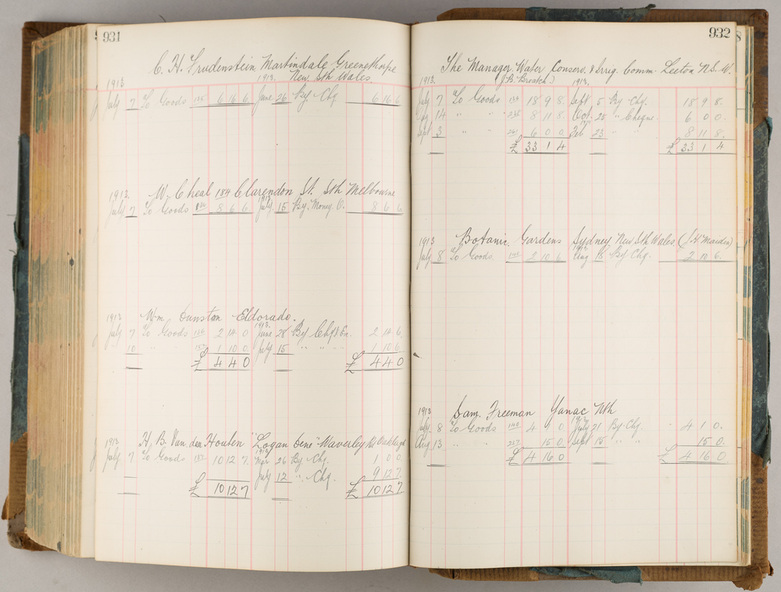 931
C. H. Trudenstein Martindale Greenethorpe
New Sth Wales
1913 1913
July 7 To Goods 6 16 6 June 26 By Chq 6 16 6
W. Cheal 184 Clarendon St. Sth Melbourne
1912
July 7 To Goods 8 6 6 July 15 By Money O. 8 6 6
Wm. Dunston Eldorado.
1913 1913
July 7 To Goods 2 14 0 June 28 By 2 14 0
10 " 1 10 0 July 15 " " " 1 10 0
£ 4 4 0 £ 4 4 0
H. B. Van den Houten "Logan Dene" Waverley Rd
1913
July 7 To Goods 10 12 7 26 By Chq 1 0 0
July 12 " Chq. 9 12 7
£ 10 12 7 £ 10 12 7
932
The Manager Water Conserv. & Irrig. Comm. Leeton N.S.W.
1913 1913
July 7 To Goods 18 9 8 Sept 5 By Chq. 18 9 8
14 " " 8 11 8 Oct 28 " Cheque 6 0 0
Sept 3 " " 6 0 0 Feb 23 " 8 11 8
£ 33 1 4 £ 33 1 4
Botanic Gardens Sydney New Sth Wales (J. H. Maiden)
1913
July 8 To Goods 2 10 6 Aug By Chq. 2 10 6
Sam Freeman Yanac Nth
1913
July 8 To Goods 4 1 0 July 21 By Chq 4 1 0
Aug 13 " " 15 0 Sept 15 " " 15 0
£ 4 16 0 £ 4 16 0